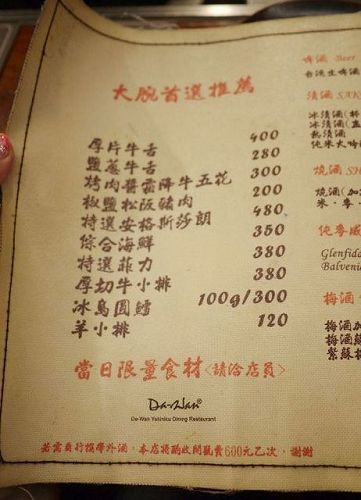 大腕首選推薦
厚片牛舌 400
鹽蔥牛舌 280
烤肉醬霜降牛五花 300
椒鹽松阪豬肉 200
特選安格斯莎朗 480
綜合海鮮 350
特選菲力 380
厚切牛小排 380
冰島圓鱈 100g/300
羊小排 120
當日限量食材<請洽店員>
Da-Wan®
Da-Wan Yakiniku Dining Restaurant
若需自行攜帶外酒,本店將酌收開瓶費600元乙次,謝謝
啤酒 Beer
台流生啤酒
清酒 SAK
冰清酒(杯
冰清酒(壺
熱清酒
純米大吟
燒酒 SH
燒酒(加
米.麥.
純麥威
Glenfidd
Balvenie
梅酒
梅酒加
梅酒蘇
紫蘇梅